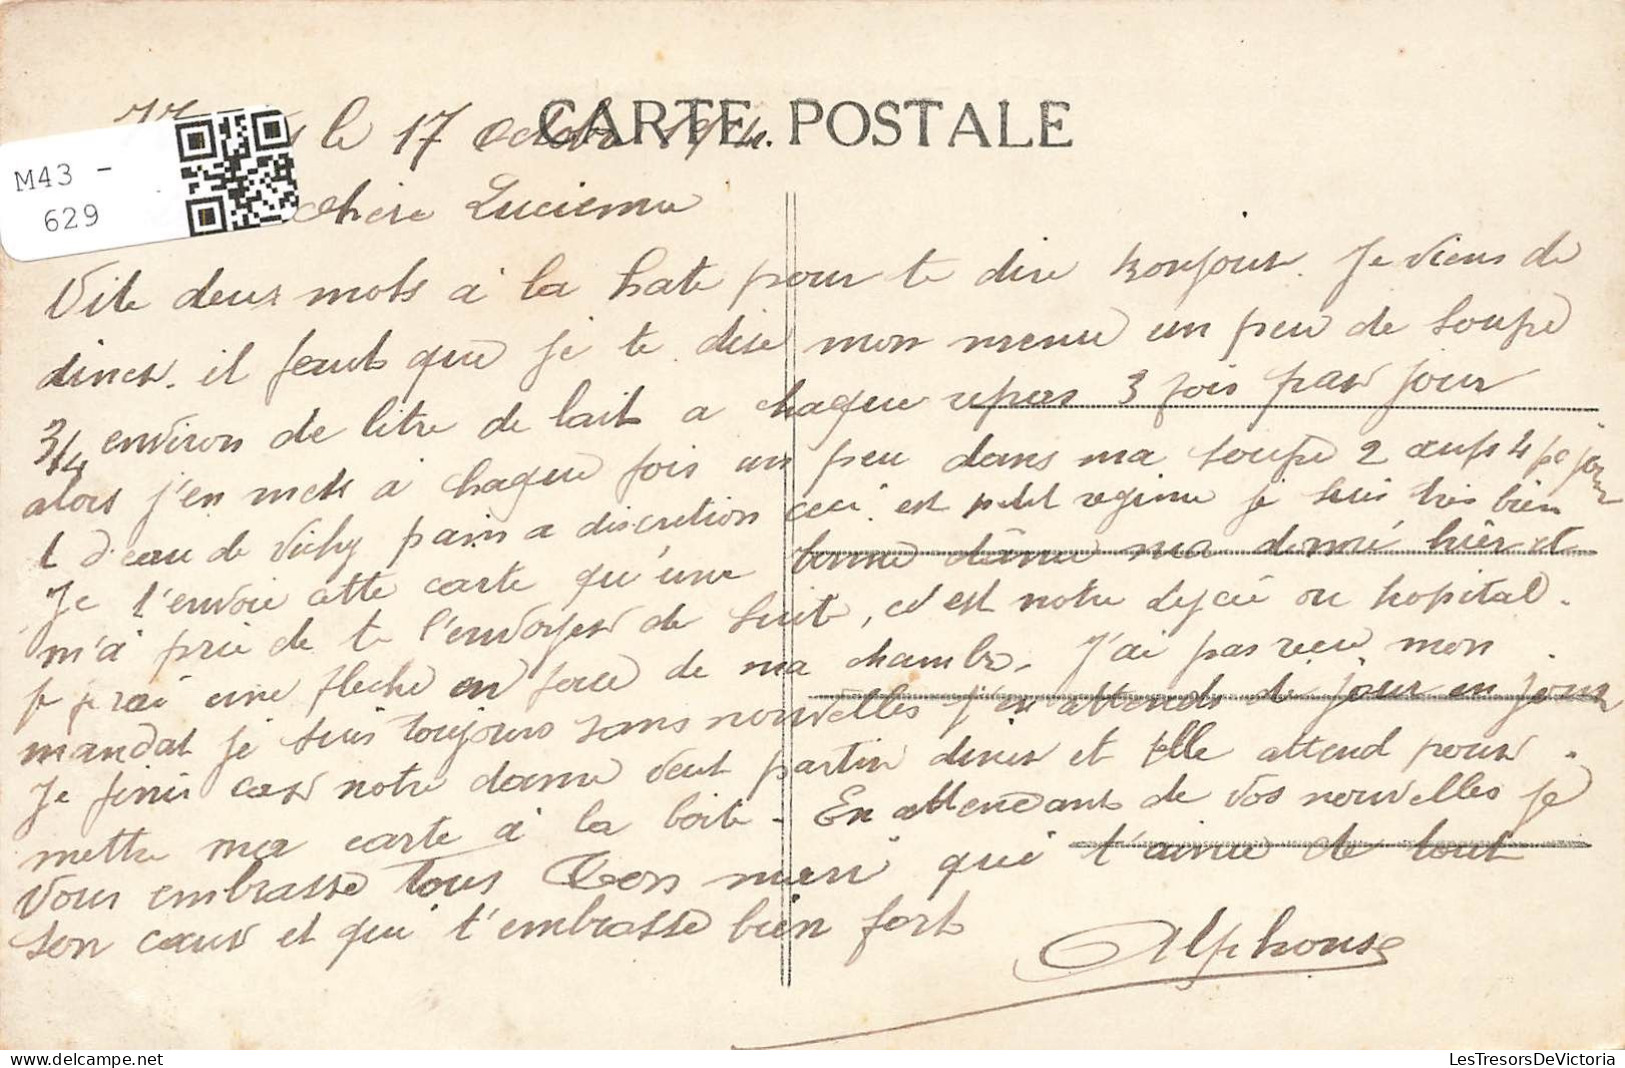 CARTE POSTALE
le 17 Octobre 1914.
M43 -
629
chère Lucienne
Vite deux mots à la hate pour te dire bonjour. Je viens de
diner. il faut que je te dise mon menu un peu de soupe
3/4 environ de litre de lait a chaque repas 3 fois par jour
alors j'en mets à chaque fois un peu dans ma soupe 2 œufs 4 par jour
1 d'eau de Vichy pain a discretion ceci est petit regime je suis très bien
Je t'envoie cette carte qu'une bonne dame ma donné hier et
m'a prié de te l'envoyer de suit, c'est notre lycée ou hopital.
je ferai une fleche en face de ma chambre. J'ai pas recu mon
mandat je suis toujours sans nouvelles j'en attends de jour en jour
Je finis car notre dame veut partir diner et elle attend pour
mettre ma carte à la boite. En attendant de vos nouvelles je
vous embrasse tous Ton mari qui t'aime de tout
son cœur et qui t'embrasse bien fort
Alphonse
LesTresorsDeVictoria